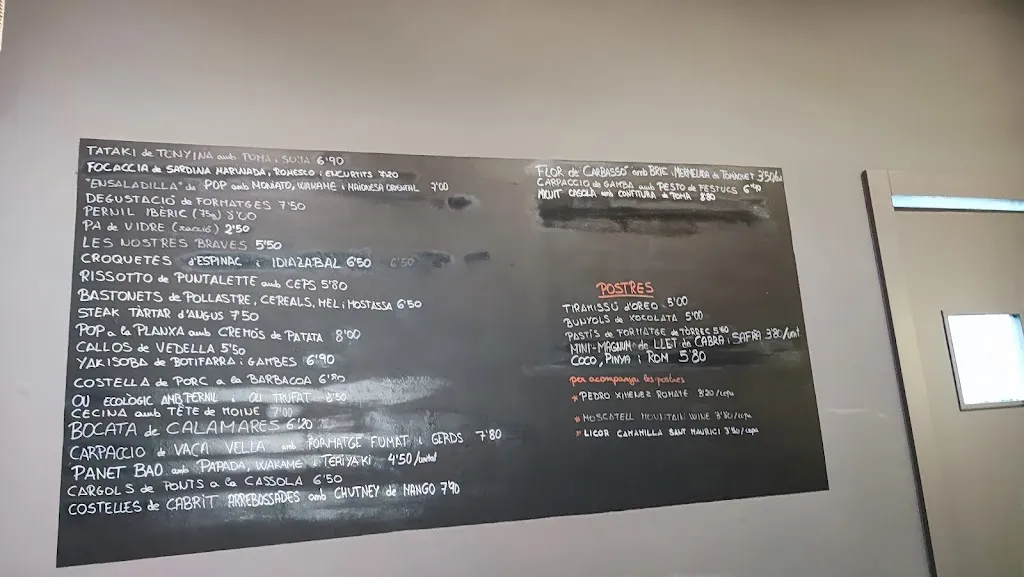 TATAKI de TONYINA amb POMA i SOJA 6'90
FOCACCIA de SARDINA MARINADA, ROMESCO i ENCURTITS 7'20
"ENSALADILLA" de POP amb MONIATO, WAKAME i MAIONESA ORIENTAL 7'00
DEGUSTACIÓ de FORMATGES 7'50
PERNIL IBÈRIC (75g) 8'00
PA de VIDRE (ració) 2'50
LES NOSTRES BRAVES 5'50
CROQUETES d'ESPINAC i IDIAZABAL 6'50 6'50
RISSOTTO de PUNTALETTE amb CEPS 5'80
BASTONETS de POLLASTRE, CEREALS, MEL i MOSTASSA 6'50
STEAK TÀRTAR d'ANGUS 7'50
POP a la PLANXA amb CREMÓS de PATATA 8'00
CALLOS de VEDELLA 5'50
YAKISOBA de BOTIFARRA i GAMBES 6'90
COSTELLA de PORC a la BARBACOA
OU ECOLÒGIC AMB PERNIL i OLI TRUFAT
CECINA amb TÊTE de MOINE 7'00
BOCATA de CALAMARES 6'20
CARPACCIO de VACA VELLA amb FORMATGE FUMAT i GERDS 7'80
PANET BAO amb PAPADA, WAKAME i TERIYAKI 4'50/unitat
CARGOLS de PONTS a la CASSOLA 6'50
COSTELLES de CABRIT ARREBOSSADES amb CHUTNEY de MANGO 7'90
FLOR de CARBASSÓ amb BRIE i MERMELADA de TOMÀQUET 3'50/u
CARPACCIO de GAMBA amb PESTO de FESTUCS
MICUIT CASOLÀ amb CONFITURA de POMA 8'80
POSTRES
TIRAMISSÚ d'OREO 5'00
BUNYOLS de XOCOLATA 5'00
PASTÍS de FORMATGE de TORRES
MINI-MAGNUM de LLET de CABRA i SAFRÀ 3'80/unit
COCO, PINYA i ROM 5'80
per acompanyar les postres
* PEDRO XIMENEZ ROMATE 3'20/copa
* MOSCATELL MOUNTAIN WINE 3'80/copa
* LICOR CAMAMILLA SANT MAURICI /copa